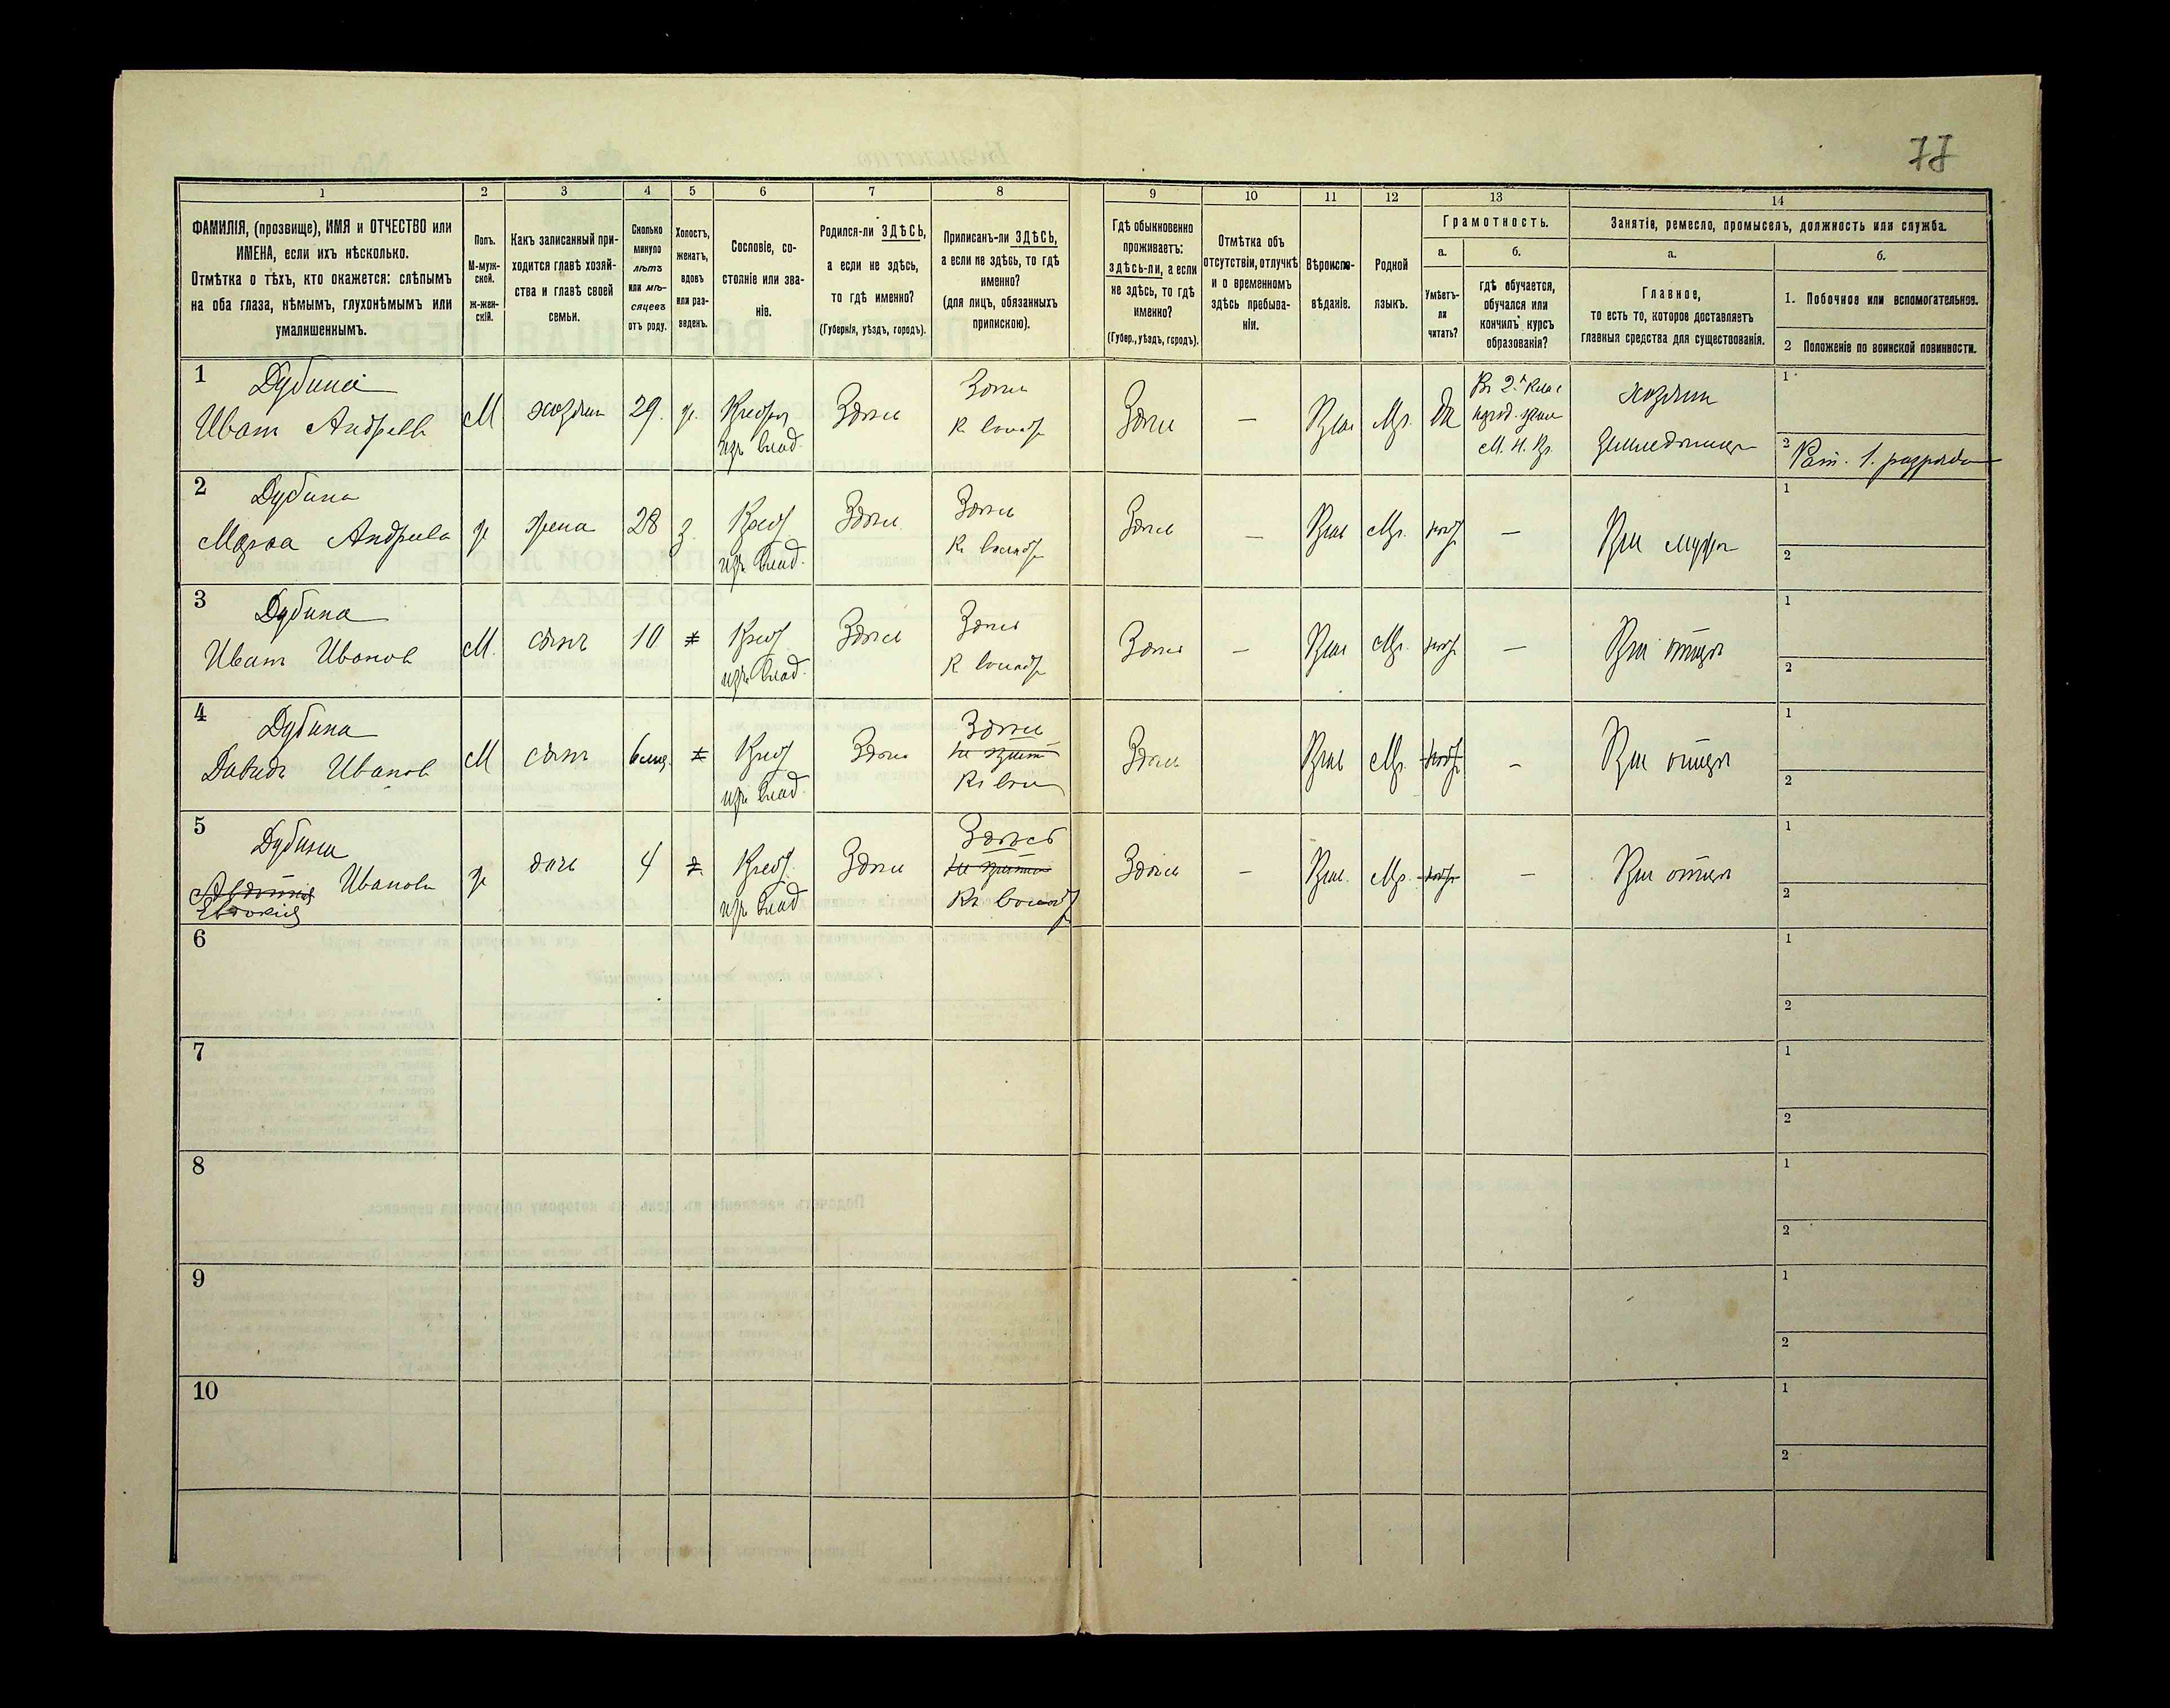 77
1 2 3 4 5 6 7 8 9 10 11 12 13 14
ФАМИЛІЯ, (прозвище), ИМЯ и ОТЧЕСТВО или
ИМЕНА, если ихъ нѣсколько.
Отмѣтка о тѣхъ, кто окажется: слѣпымъ
на оба глаза, нѣмымъ, глухонѣмымъ или
умалишеннымъ.
Полъ.
М-муж-
ской.
ж-жен-
скій.
Какъ записанный при-
ходится главѣ хозяй-
ства и главѣ своей
семьи.
Сколько
минуло
лѣтъ
или мѣ-
сяцевъ
отъ роду.
Холостъ,
женатъ,
вдовъ
или раз-
веденъ.
Сословіе, со-
стояніе или зва-
ніе.
Родился-ли ЗДѢСЬ,
а если не здѣсь,
то гдѣ именно?
(Губернія, уѣздъ, городъ).
Приписанъ-ли ЗДѢСЬ,
а если не здѣсь, то гдѣ
именно?
(для лицъ, обязанныхъ
припискою).
Гдѣ обыкновенно
проживаетъ:
здѣсь-ли, а если
не здѣсь, то гдѣ
именно?
(Губер., уѣздъ, городъ).
Отмѣтка объ
отсутствіи, отлучкѣ
и о временномъ
здѣсь пребыва-
ніи.
Вѣроиспо-
вѣданіе.
Родной
языкъ.
Грамотность.
а.
Умѣетъ-
ли
читать?
б.
гдѣ обучается,
обучался или
кончилъ курсъ
образованія?
Занятія, ремесло, промыселъ, должность или служба.
а.
Главное,
то есть то, которое доставляетъ
главныя средства для существованія.
б.
1. Побочное или вспомогательное.
2 Положеніе по воинской повинности.
1 Дубина
Иванъ Андреевъ
М хозяин 29. ж. Крестьян
изъ влад.
Здѣсь
Здѣсь
Здѣсь — Прав Мр. Да
хозяин
земледелец
1
2 Рат. 1. разряда
2 Дубина
Марфа Андреева
ж жена 28 з. Крест
изъ влад.
Здѣсь
Здѣсь
Здѣсь — Прав Мр. —
При мужѣ
1
2
3 Дубина
Иванъ Иванов
М. сынъ 10 Крест
изъ влад.
Здѣсь
Здѣсь
Здѣсь — Прав Мр. —
При отцѣ
1
2
4 Дубина
Давидъ Иванов
М сынъ 6 мѣс. Крест
изъ влад.
Здѣсь
Здѣсь
Здѣсь Прав Мр. —
При отцѣ
1
2
5 Дубина
Иванова
Евдокия
ж дочь 4 Крест.
изъ влад
Здѣсь
Здѣсь
Здѣсь — Прав. Мр. —
При отцѣ
1
2
6
1
2
7
1
2
8
1
2
9
1
2
10
1
2